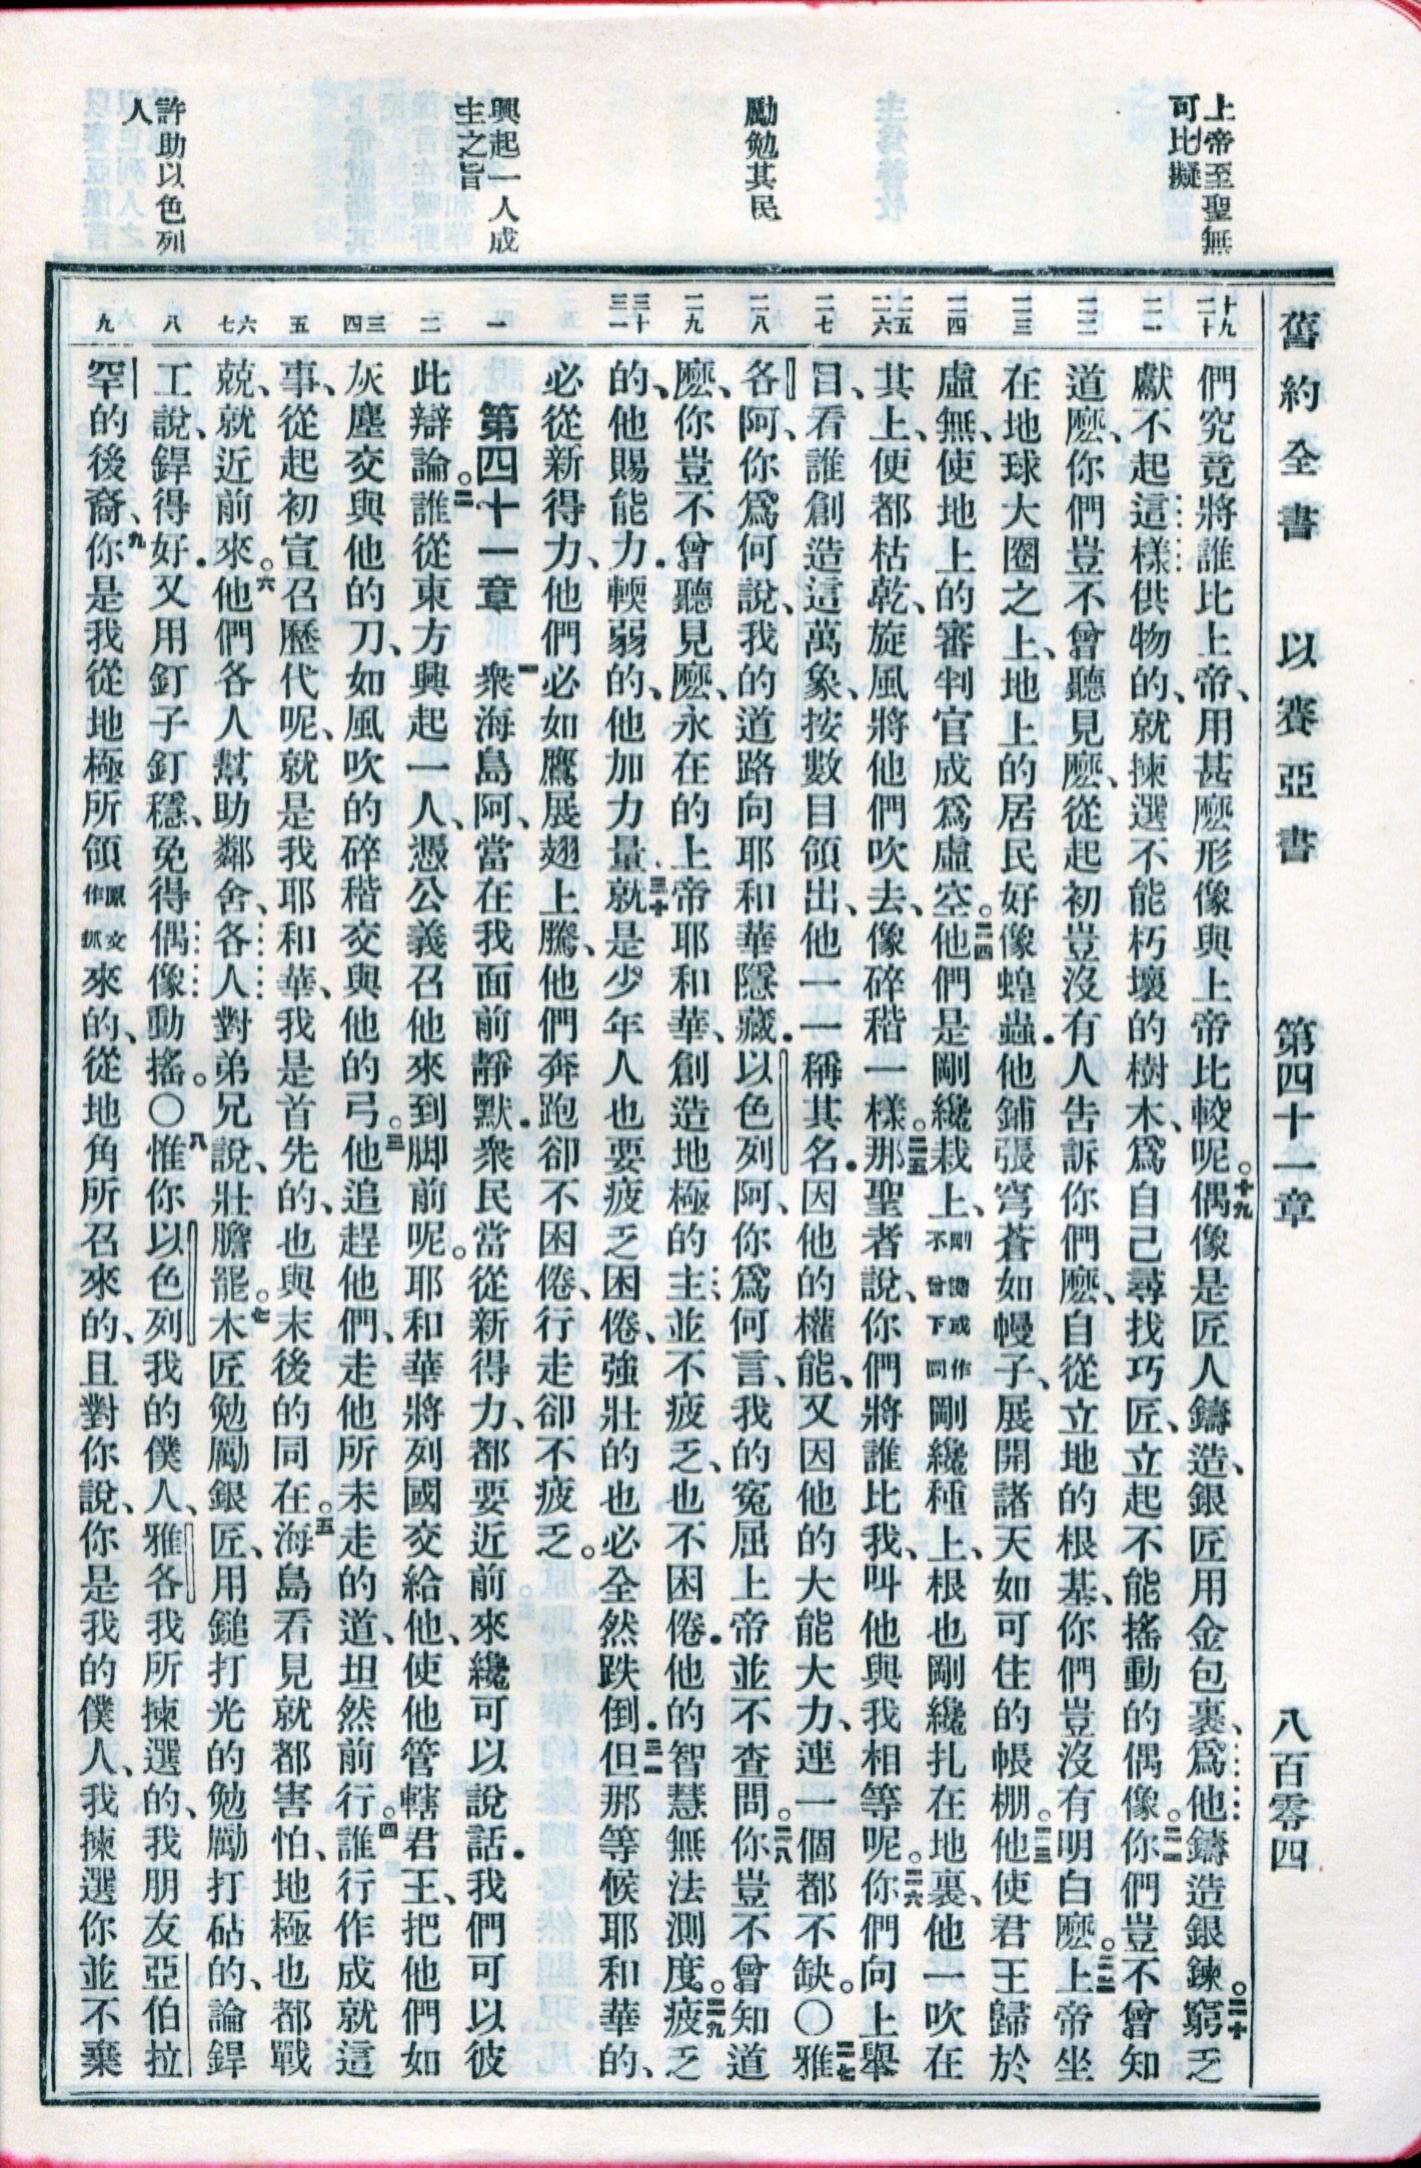 上帝至聖無
可比擬
勵勉其民
興起一人成
主之旨
許助以色列
人
舊約全書 以賽亞書 第四十一章 八百零四
十九 二十
二一
二二
二三
二四
二五 二六
二七
二八
二九
三十 三一
一
二
三 四
五
六 七
八
九
們究竟將誰比上帝、用甚麽形像與上帝比較呢。十九偶像是匠人鑄造、銀匠用金包裹、爲他鑄造銀鍊。二十窮乏
獻不起這樣供物的、就揀選不能朽壞的樹木、爲自己尋找巧匠、立起不能搖動的偶像。二一你們豈不曾知
道麽、你們豈不曾聽見麽、從起初豈沒有人告訴你們麽、自從立地的根基、你們豈沒有明白麽。二二上帝坐
在地球大圈之上、地上的居民好像蝗蟲．他鋪張穹蒼如幔子、展開諸天如可住的帳棚。二三他使君王歸於
虛無、使地上的審判官成爲虛空。二四他們是剛纔栽上、剛纔或作不曾下同剛纔種上、根也剛纔扎在地裏、他一吹在
其上、便都枯乾、旋風將他們吹去、像碎稭一樣。二五那聖者說、你們將誰比我、叫他與我相等呢。二六你們向上舉
目、看誰創造這萬象、按數目領出、他一一稱其名．因他的權能、又因他的大能大力、連一個都不缺。〇二七雅
各阿、你爲何說、我的道路向耶和華隱藏．以色列阿、你爲何言、我的冤屈上帝並不查問。二八你豈不曾知道
麽、你豈不曾聽見麽、永在的上帝耶和華、創造地極的主、並不疲乏、也不困倦．他的智慧無法測度。二九疲乏
的、他賜能力．輭弱的、他加力量。三十就是少年人也要疲乏困倦、強壯的也必全然跌倒．三一但那等候耶和華的、
必從新得力、他們必如鷹展翅上騰、他們奔跑卻不困倦、行走卻不疲乏。
第四十一章 一衆海島阿、當在我面前靜默．衆民當從新得力、都要近前來纔可以說話．我們可以彼
此辯論。二誰從東方興起一人、憑公義召他來到脚前呢。耶和華將列國交給他、使他管轄君王、把他們如
灰塵交與他的刀、如風吹的碎稭交與他的弓。三他追趕他們、走他所未走的道、坦然前行。四誰行作成就這
事、從起初宣召歷代呢、就是我耶和華、我是首先的、也與末後的同在。五海島看見就都害怕、地極也都戰
兢、就近前來。六他們各人幫助鄰舍、各人對弟兄說、壯膽罷。七木匠勉勵銀匠、用鎚打光的勉勵打砧的、論銲
工說、銲得好．又用釘子釘穩、免得偶像動搖。〇八惟你以色列我的僕人、雅各我所揀選的、我朋友亞伯拉
罕的後裔、九你是我從地極所領原文作抓來的、從地角所召來的、且對你說、你是我的僕人、我揀選你並不棄